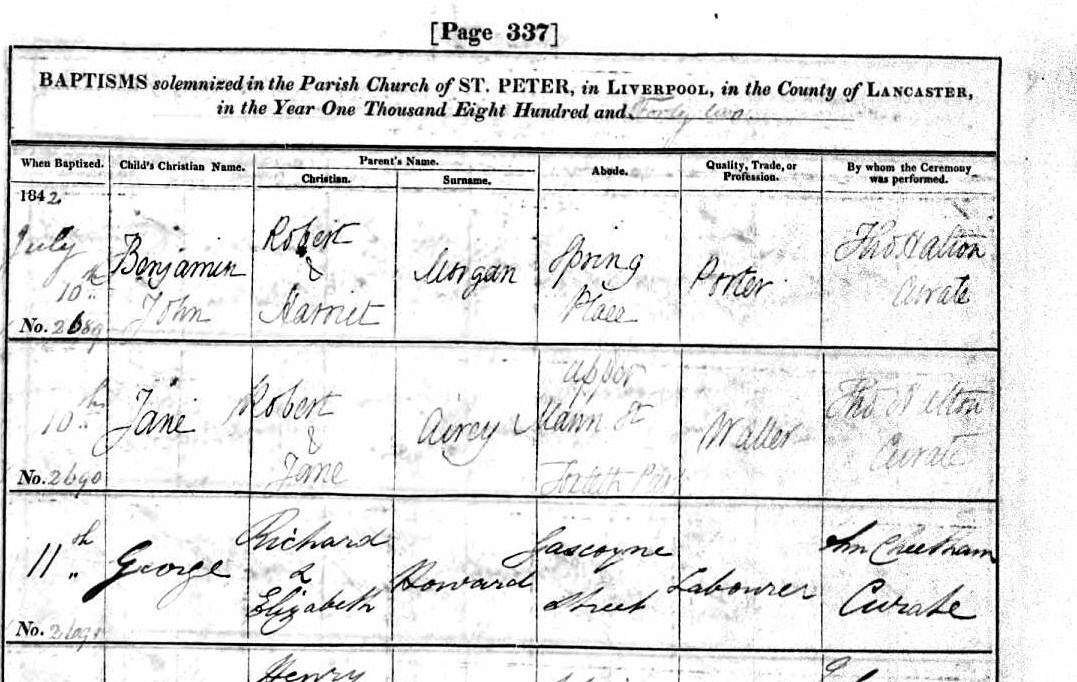 [Page 337]
BAPTISMS solemnized in the Parish Church of ST. PETER, in LIVERPOOL, in the County of LANCASTER,
in the Year One Thousand Eight Hundred and Forty two
When Baptized.
Child's Christian Name.
Parent's Name.
Christian.
Surname.
Abode.
Quality, Trade, or
Profession.
By whom the Ceremony
was performed.
1842
July
10th
No. 2689
Benjamin
John
Robert
&
Harriet
Morgan
Spring
Place
Porter
Thos Halton
Curate
10th
No. 2690
Jane
Robert
&
Jane
Airey
Upper
Mann St
Toxteth Park
Waller
Thos Halton
Curate
11th
No. 2691
George
Richard
&
Elizabeth
Howard
Gascoyne
Street
Labourer
Cheetham
Curate
Henry